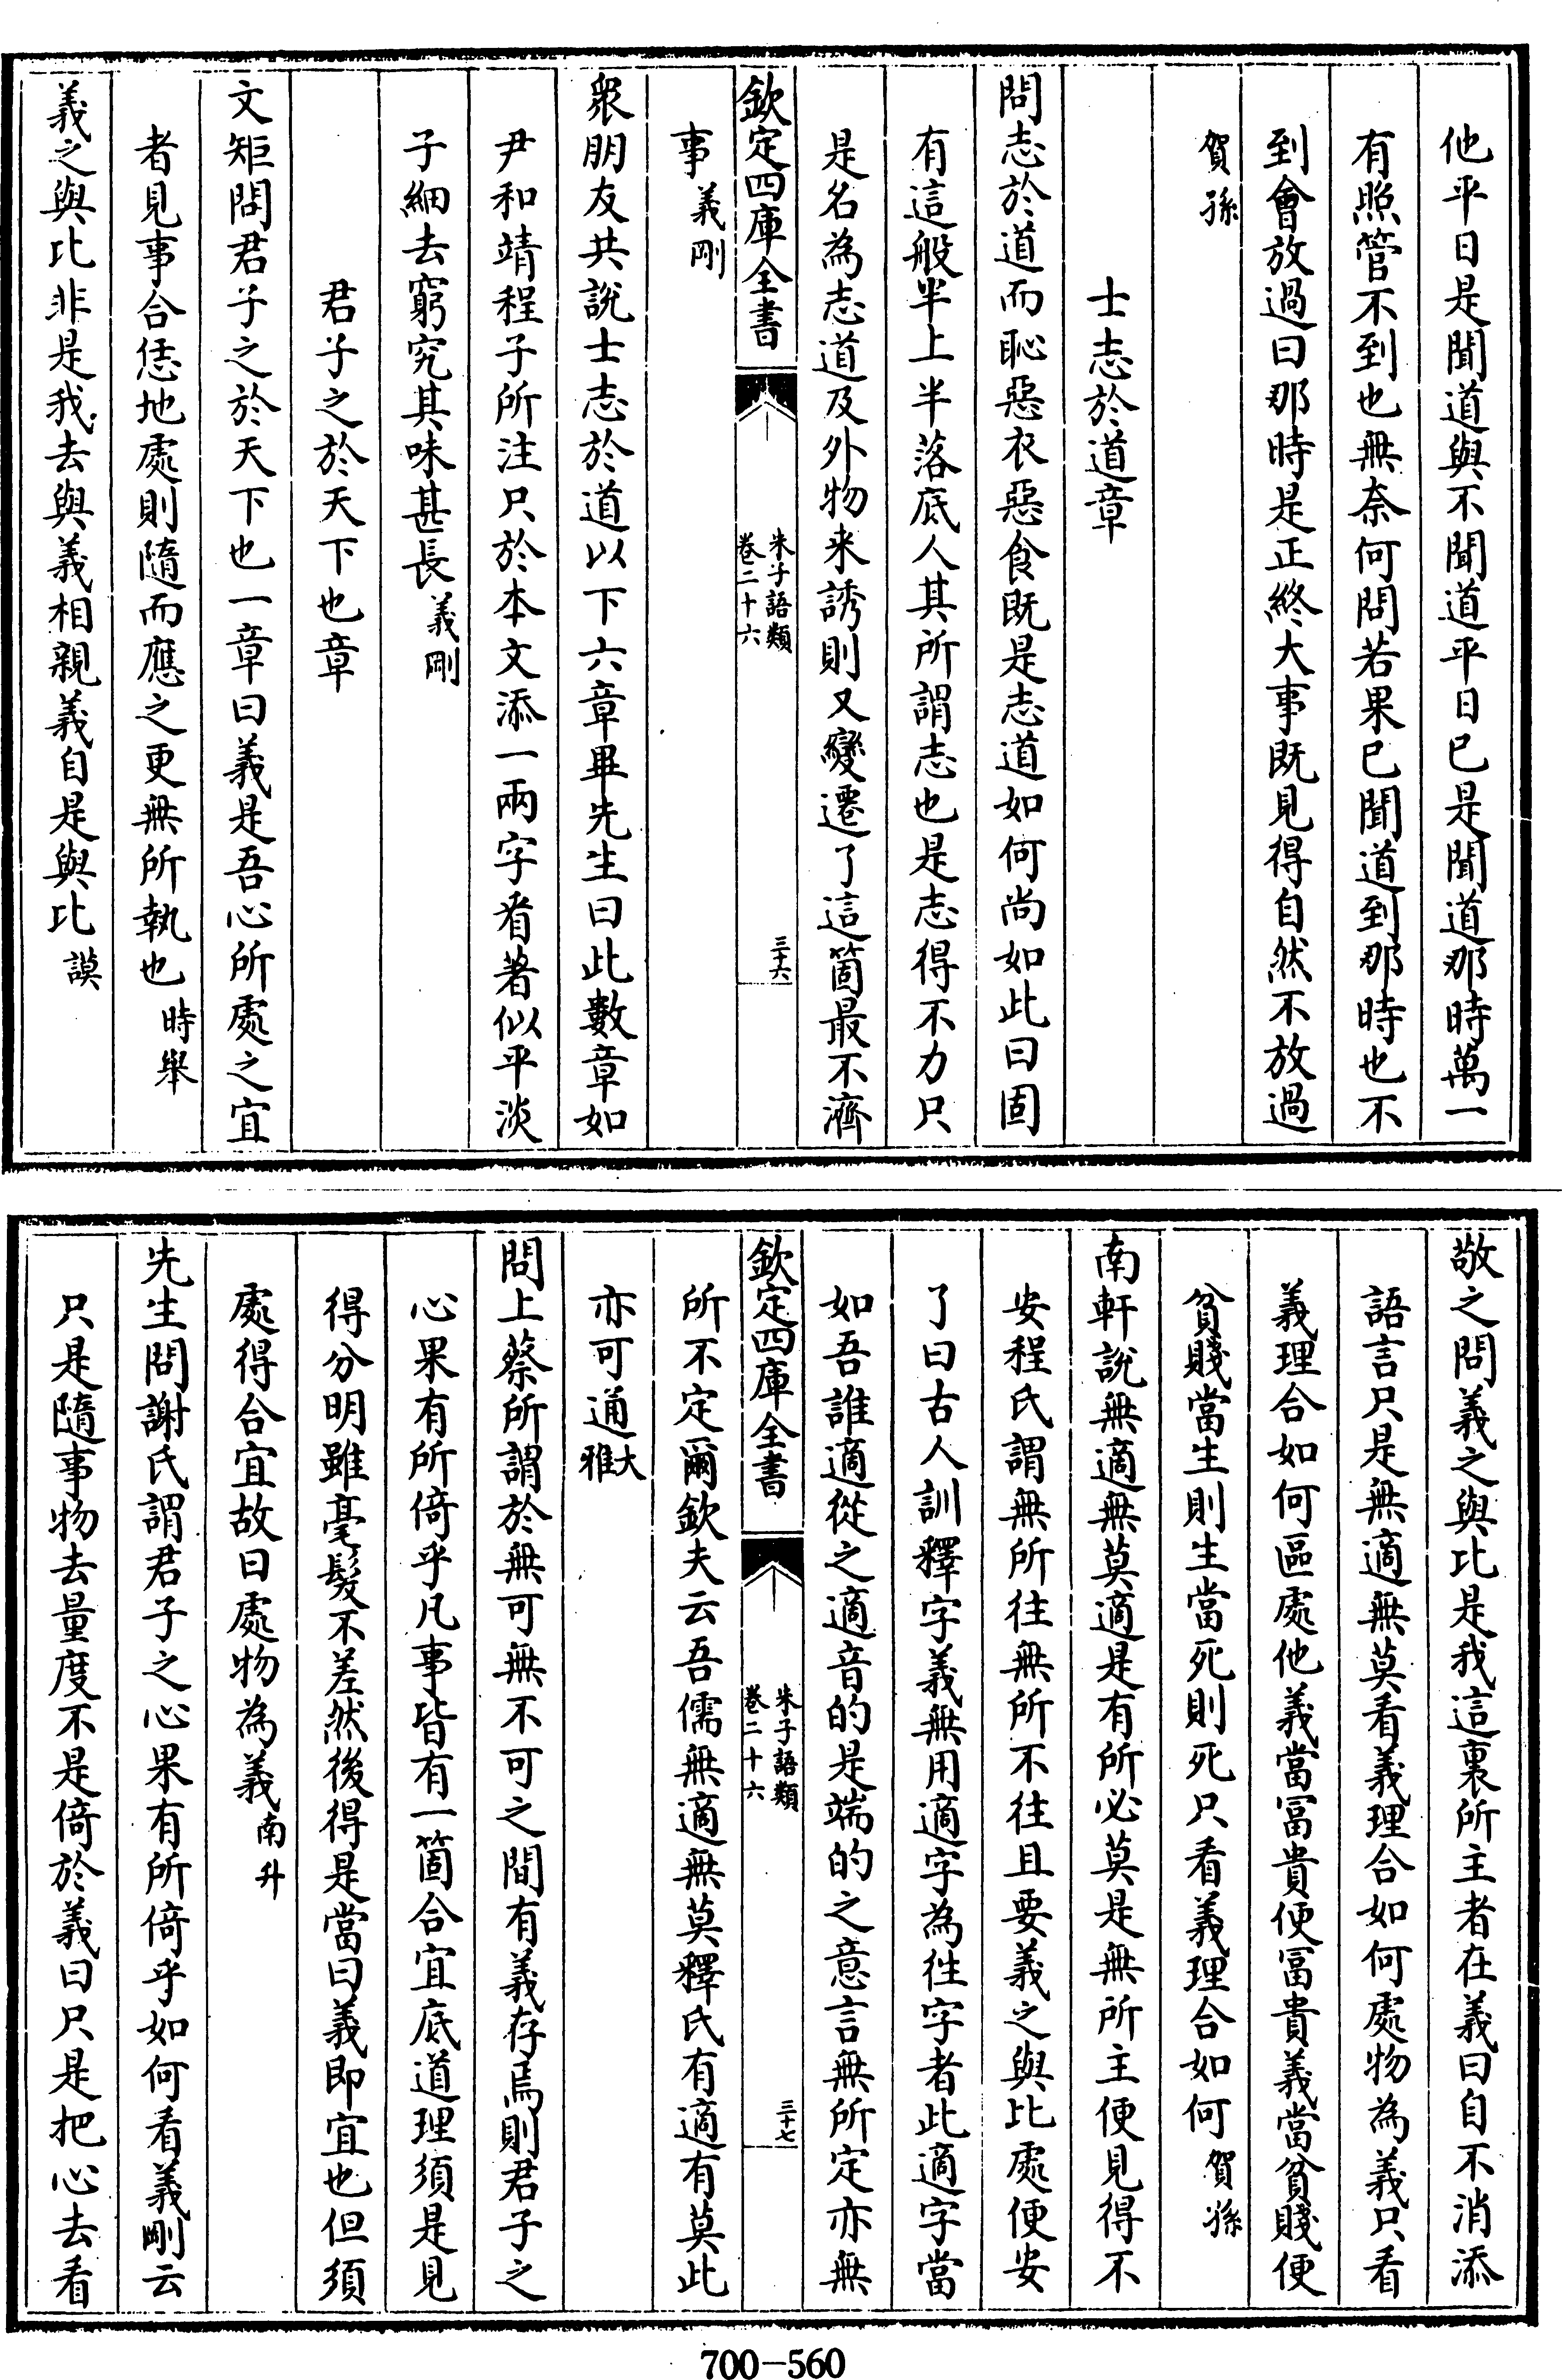 他平日是聞道與不聞道平日已是聞道那時萬一
有照管不到也無奈何問若果已聞道到那時也不
到會放過曰那時是正終大事既見得自然不放過
賀孫
士志於道章
問志於道而恥惡衣惡食既是志道如何尚如此曰固
有這般半上半落底人其所謂志也是志得不力只
是名為志道及外物来誘則又變遷了這箇最不濟
欽定四庫全書
朱子語類
卷二十六
三十六
事義剛
衆朋友共說士志於道以下六章畢先生曰此數章如
尹和靖程子所注只於本文添一兩字看著似平淡
子細去窮究其味甚長義剛
君子之於天下也章
文矩問君子之於天下也一章曰義是吾心所處之宜
者見事合恁地處則隨而應之更無所執也時舉
義之與比非是我去與義相親義自是與比謨
敬之問義之與比是我這裏所主者在義曰自不消添
語言只是無適無莫看義理合如何處物為義只看
義理合如何區處他義當冨貴便冨貴義當貧賤便
貧賤當生則生當死則死只看義理合如何賀孫
南軒說無適無莫適是有所必莫是無所主便見得不
安程氏謂無所往無所不往且要義之與比處便安
了曰古人訓釋字義無用適字為徃字者此適字當
如吾誰適從之適音的是端的之意言無所定亦無
欽定四庫全書
朱子語類
卷二十六
三十七
所不定爾欽夫云吾儒無適無莫釋氏有適有莫此
亦可通大雅
問上蔡所謂於無可無不可之間有義存焉則君子之
心果有所倚乎凡事皆有一箇合宜底道理須是見
得分明雖毫髮不差然後得是當曰義即宜也但須
處得合宜故曰處物為義南升
先生問謝氏謂君子之心果有所倚乎如何看義剛云
只是隨事物去量度不是倚於義曰只是把心去看
700-560